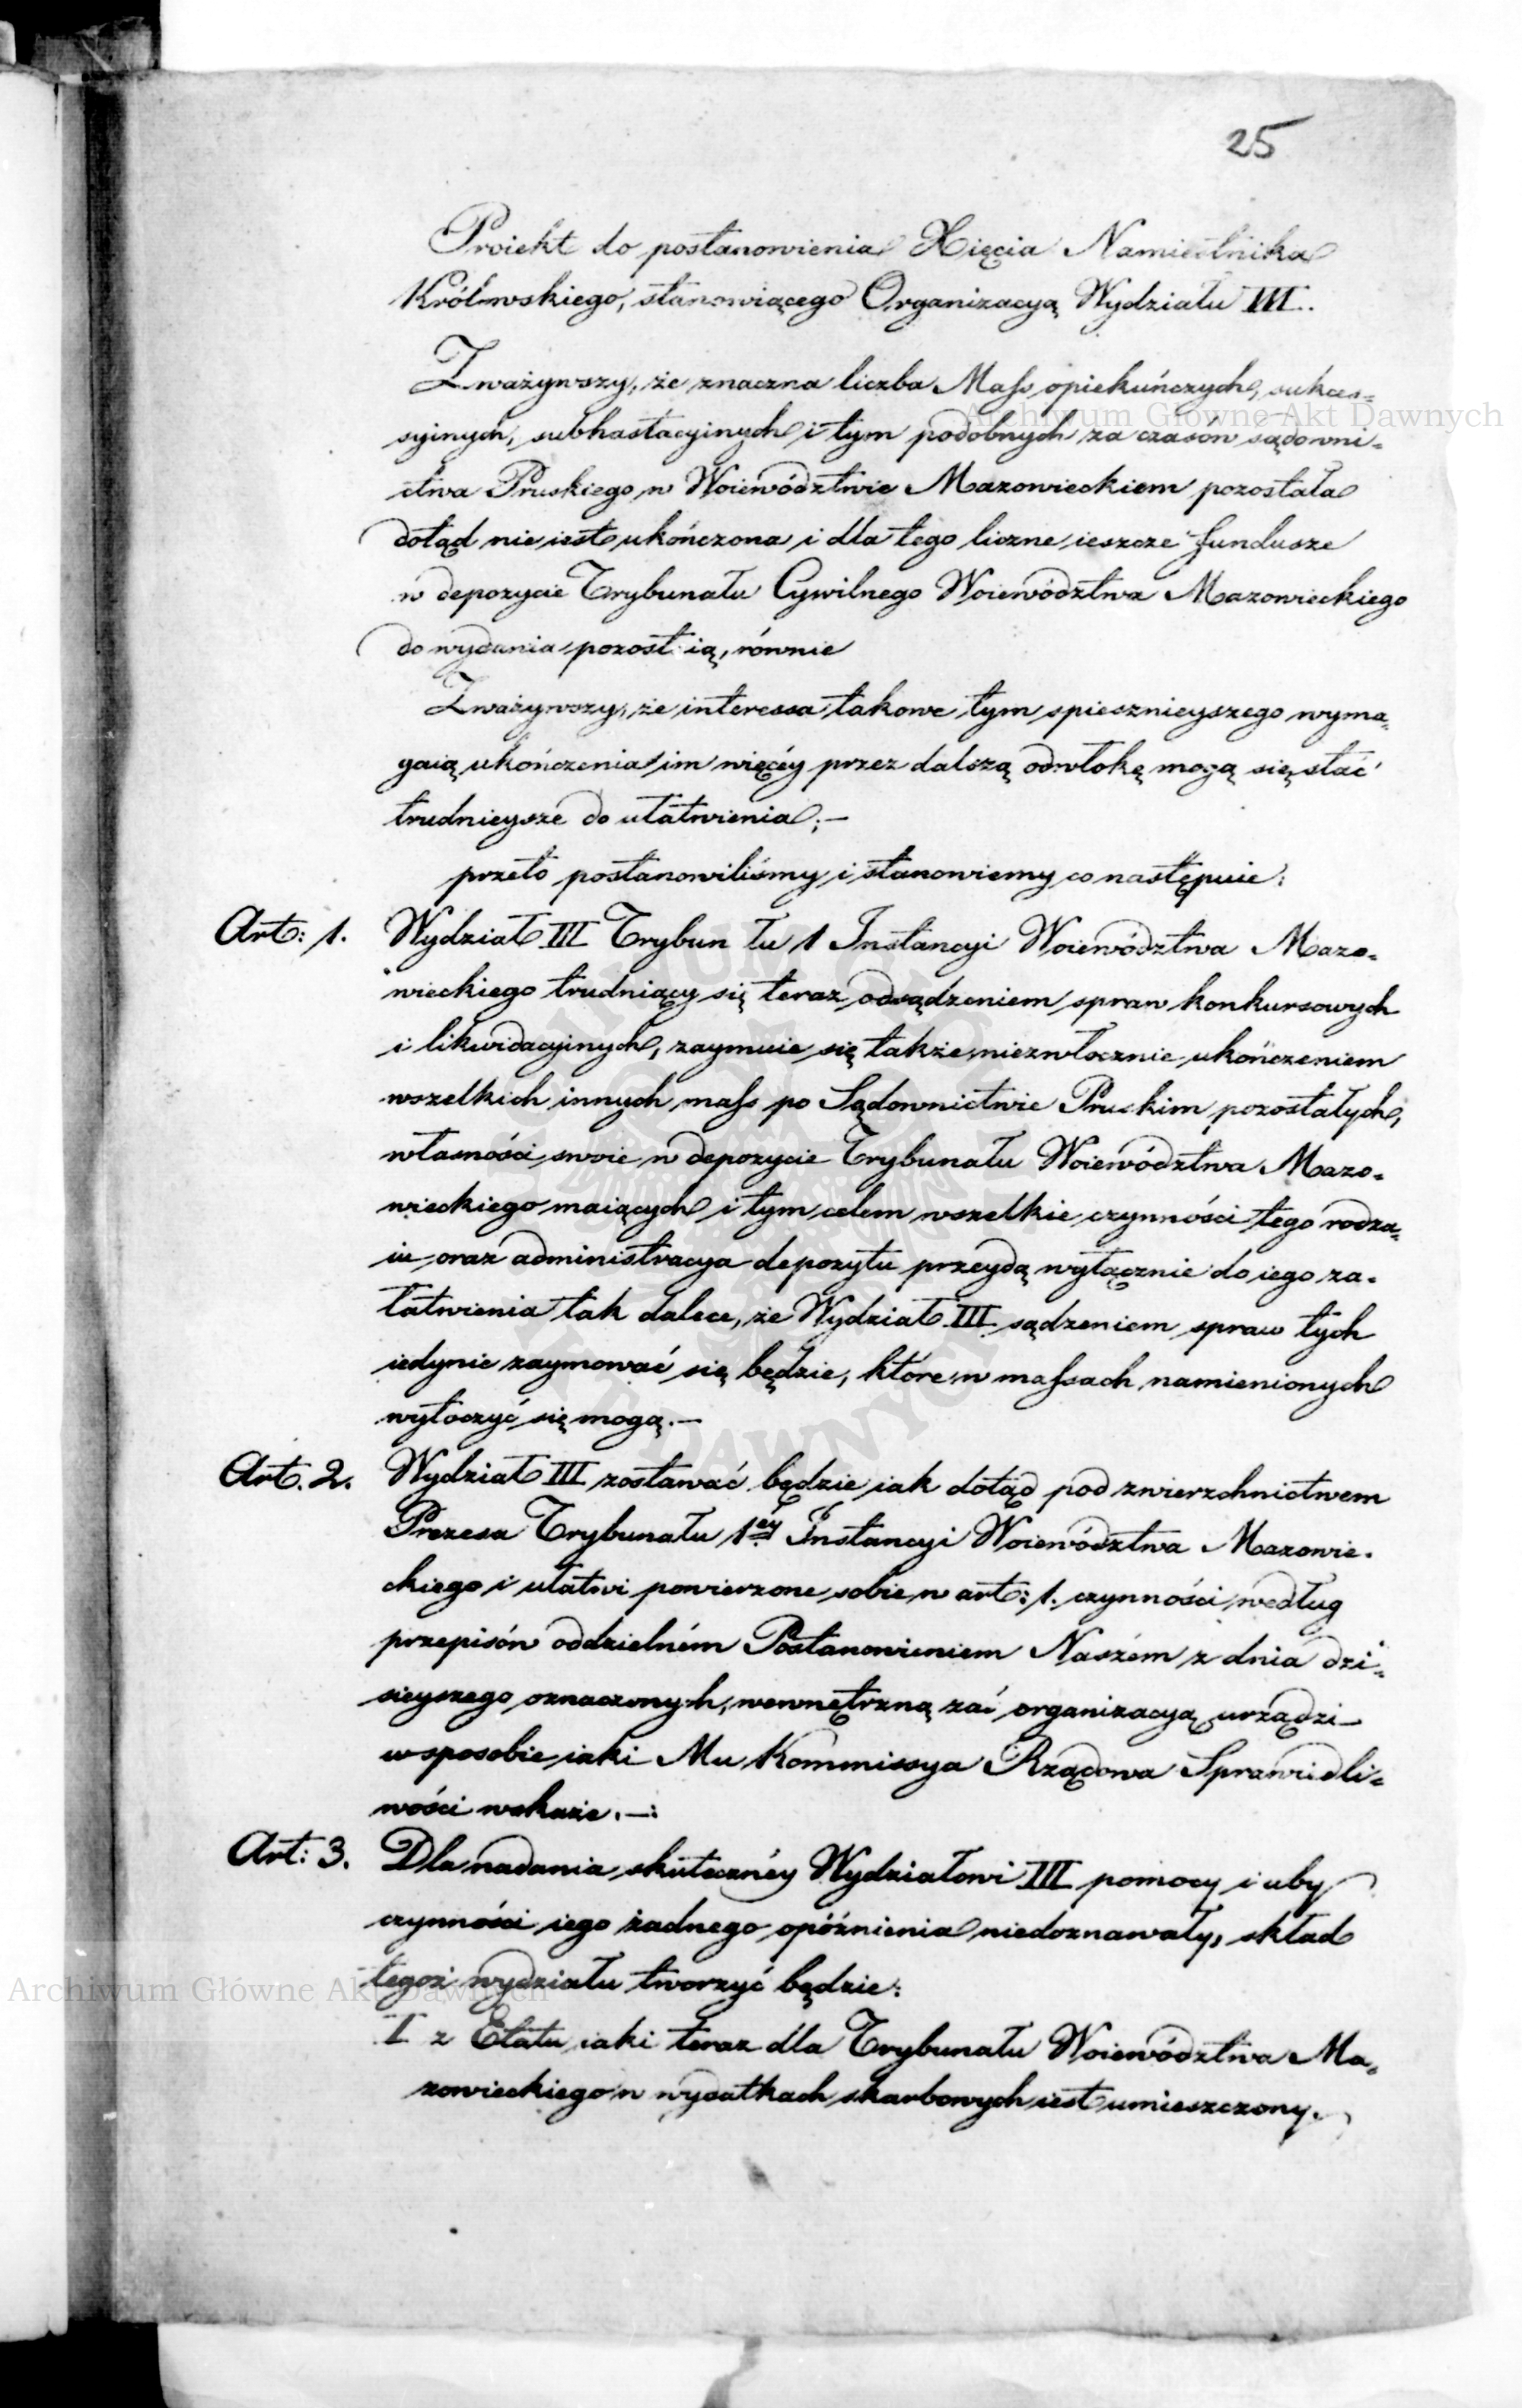 25
Proiekt do postanowienia Xięcia Namiestnika
Królewskiego, stanowiącego Organizacyą Wydziału III.
Zważywszy, że znaczna liczba Mass opiekuńczych, sukces=
syinych, subhastacyinych i tym podobnych za czasów sądowni=
ctwa Pruskiego w Woiewództwie Mazowieckiem pozostała
dotąd nie iest ukończona i dla tego liczne ieszcze fundusze
w depozycie Trybunału Cywilnego Woiewództwa Mazowieckiego
do wydania pozost ią, równie
Zważywszy, że interessa takowe tym spiesznieyszego wyma=
gaią ukończenia im więcéy przez dalszą odwłokę mogą się stać
trudnieysze do ułatwienia;—
przeto postanowiliśmy i stanowiemy co następuie:
Art: 1. Wydział III Trybun łu 1 Instancyi Woiewództwa Mazo=
wieckiego trudniący się teraz odsądzeniem spraw konkursowych
i likwidacyinych, zaymuie się także niezwłocznie ukończeniem
wszelkich innych mass po Sądownictwie Pruskim pozostałych,
własności swoie w depozycie Trybunału Woiewództwa Mazo=
wieckiego maiących i tym celem wszelkie czynności tego rodza=
iu oraz administracya depozytu przeydą wyłącznie do iego za=
łatwienia tak dalece, że Wydział III sądzeniem spraw tych
iedynie zaymować się będzie, które w massach namienionych
wytoczyć się mogą.—
Art. 2. Wydział III zostawać będzie iak dotąd pod zwierzchnictwem
Prezesa Trybunału 1éy Instancyi Woiewództwa Mazowie=
ckiego i ułatwi powierzone sobie w art: 1. czynności według
przepisów oddzielném Postanowieniem Naszém z dnia dzi=
sieyszego oznaczonych, wewnętrzną zaś organizacyą urządzi
w sposobie iaki Mu Kommissya Rządowa Sprawiedli=
wości wskaże.—:
Art: 3. Dla nadania skutecznéy Wydziałowi III pomocy i aby
czynności iego żadnego opóźnienia niedoznawały, skład
tegoż wydziału tworzyć będzie:
I z Etatu iaki teraz dla Trybunału Woiewództwa Ma=
zowieckiego w wydatkach skarbowych iest umieszczony.
Archiwum Główne Akt Dawnych
Archiwum Główne Akt Dawnych